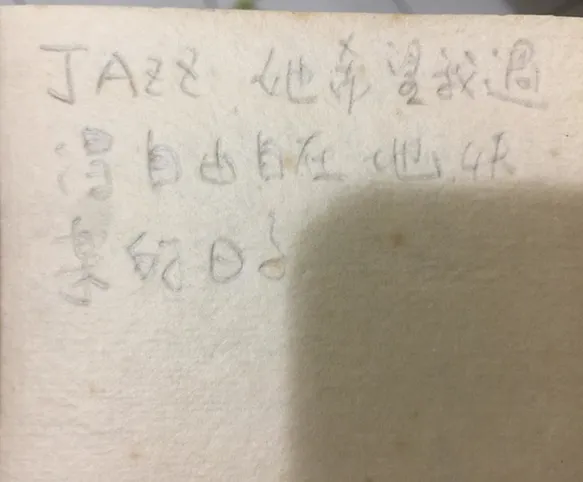 JAZZ 他希望我過
得自由自在 他 快
樂的日子